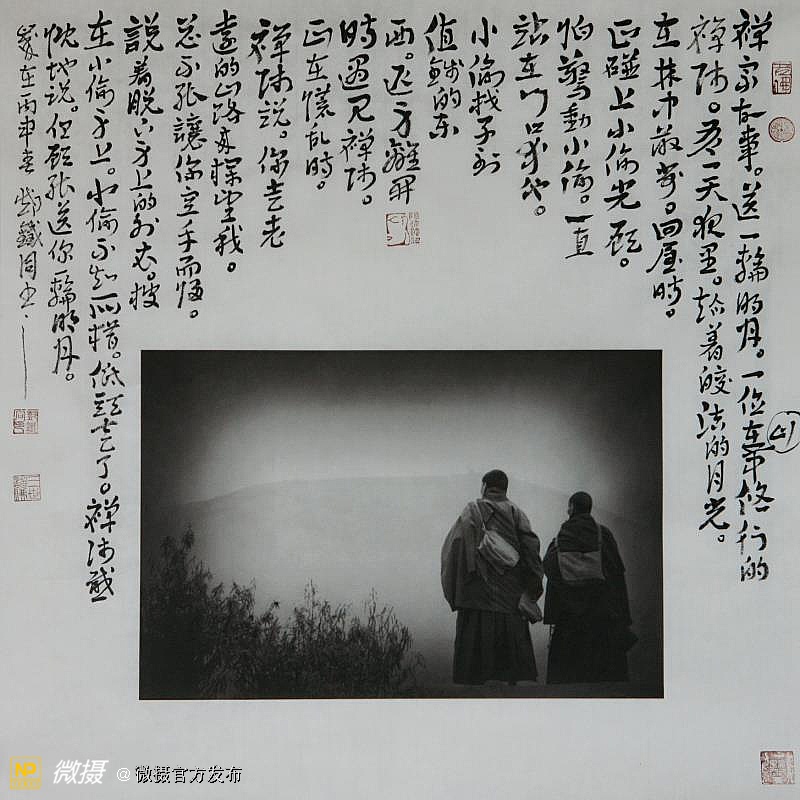 禅家故事。送一轮明月。一位在山中修行的
禅师。有一天夜里。趁着皎洁的月光。
在林中散步。回屋时。
正碰上小偷光顾。
怕驚動小偷。一直
站在门口等候。
小偷找不到
值钱的东
西。返身離開
時遇见禅师。
正在慌乱時。
禅师说。你走老
遠的山路来探望我。
总不能讓你空手而返。
説着脱下身上的外衣。披
在小偷身上。小偷不知所措。低頭走了。禅师感
慨地说。但願能送你一輪明月。
歲在丙申春
41
微摄
@微摄官方发布